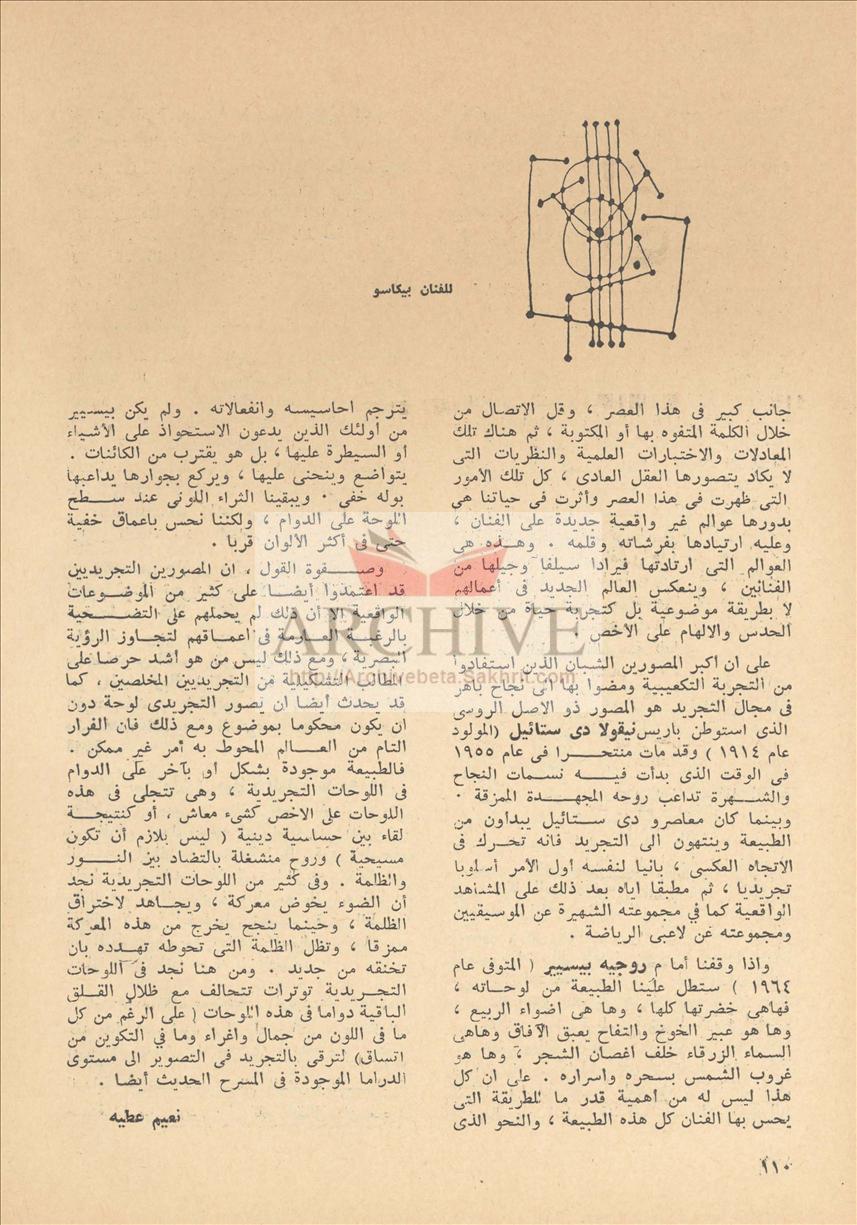 للفنان بيكاسو
جانب كبير فى هذا العصر ، وقل الاتصال من
خلال الكلمة المتفوه بها أو المكتوبة ، ثم هناك تلك
المعادلات والاختبارات العلمية والنظريات التى
لا يكاد يتصورها العقل العادى ، كل تلك الأمور
التى ظهرت فى هذا العصر وأثرت فى حياتنا هى
بدورها عوالم غير واقعية جديدة على الفنان ،
وعليه ارتيادها بفرشاته وقلمه . وهذه هى
العوالم التى ارتادتها فيرادا سيلفا وجيلها من
الفنانين ، وينعكس العالم الجديد فى أعمالهم
لا بطريقة موضوعية بل كتجربة حياة من خلال
الحدس والالهام على الأخص .
على ان أكبر المصورين الشبان الذين استفادوا
من التجربة التكعيبية ومضوا بها الى نجاح باهر
فى مجال التجريد هو المصور ذو الاصل الروسى
الذى استوطن باريس نيقولا دى ستائيل (المولود
عام ١٩١٤ ) وقد مات منتحرا فى عام ١٩٥٥
فى الوقت الذى بدأت فيه نسمات النجاح
والشهرة تداعب روحه المجهدة الممزقة .
وبينما كان معاصرو دى ستائيل يبدأون من
الطبيعة وينتهون الى التجريد فانه تحرك فى
الاتجاه العكسى ، بانيا لنفسه أول الأمر أسلوبا
تجريديا ، ثم مطبقا اياه بعد ذلك على المشاهد
الواقعية كما فى مجموعته الشهيرة عن الموسيقيين
ومجموعته عن لاعبى الرياضة .
واذا وقفنا أمام روجيه بيسيير ( المتوفى عام
١٩٦٤ ) ستطل علينا الطبيعة من لوحاته ،
فهاهى خضرتها كلها ، وها هى اضواء الربيع ،
وها هو عبير الخوخ والتفاح يعبق الآفاق وهاهى
السماء الزرقاء خلف اغصان الشجر ، وها هو
غروب الشمس بسحره واسراره . على ان كل
هذا ليس له من أهمية قدر ما للطريقة التى
يحس بها الفنان كل هذه الطبيعة ، والنحو الذى
يترجم احاسيسه وانفعالاته . ولم يكن بيسيير
من أولئك الذين يدعون الاستحواذ على الأشياء
أو السيطرة عليها ، بل هو يقترب من الكائنات .
يتواضع وينحنى عليها ، ويركع بجوارها يداعبها
بوله خفى . ويبقينا الثراء اللونى عند سطح
اللوحة على الدوام ، ولكننا نحس باعماق خفية
حتى فى أكثر الألوان قربا .
وصفوة القول ، ان المصورين التجريديين
قد اعتمدوا أيضا على كثير من الموضوعات
الواقعية الا أن ذلك لم يحملهم على التضحية
بالرغبة العارمة فى أعماقهم لتجاوز الرؤية
البصرية ، ومع ذلك ليس من هو أشد حرصا على
المطالب التشكيلية من التجريديين المخلصين ، كما
قد يحدث أيضا ان يصور التجريدى لوحة دون
ان يكون محكوما بموضوع ومع ذلك فان الفرار
التام من العالم المحوط به أمر غير ممكن .
فالطبيعة موجودة بشكل أو بآخر على الدوام
فى اللوحات التجريدية ، وهى تتجلى فى هذه
اللوحات على الاخص كشىء معاش ، أو كنتيجة
لقاء بين حساسية دينية ( ليس بلازم أن تكون
مسيحية ) وروح منشغلة بالتضاد بين النور
والظلمة . وفى كثير من اللوحات التجريدية نجد
أن الضوء يخوض معركة ، ويجاهد لاختراق
الظلمة ، وحينما ينجح يخرج من هذه المعركة
ممزقا ، وتظل الظلمة التى تحوطه تهدده بان
تخنقه من جديد . ومن هنا نجد فى اللوحات
التجريدية توترات تتحالف مع ظلال القلق
الباقية دواما فى هذه اللوحات ( على الرغم من كل
ما فى اللون من جمال واغراء وما فى التكوين من
اتساق) لترقى بالتجريد فى التصوير الى مستوى
الدراما الموجودة فى المسرح الحديث أيضا .
نعيم عطيه
١١٠
ARCHIVE
http://Archivebeta.Sakhrit.com